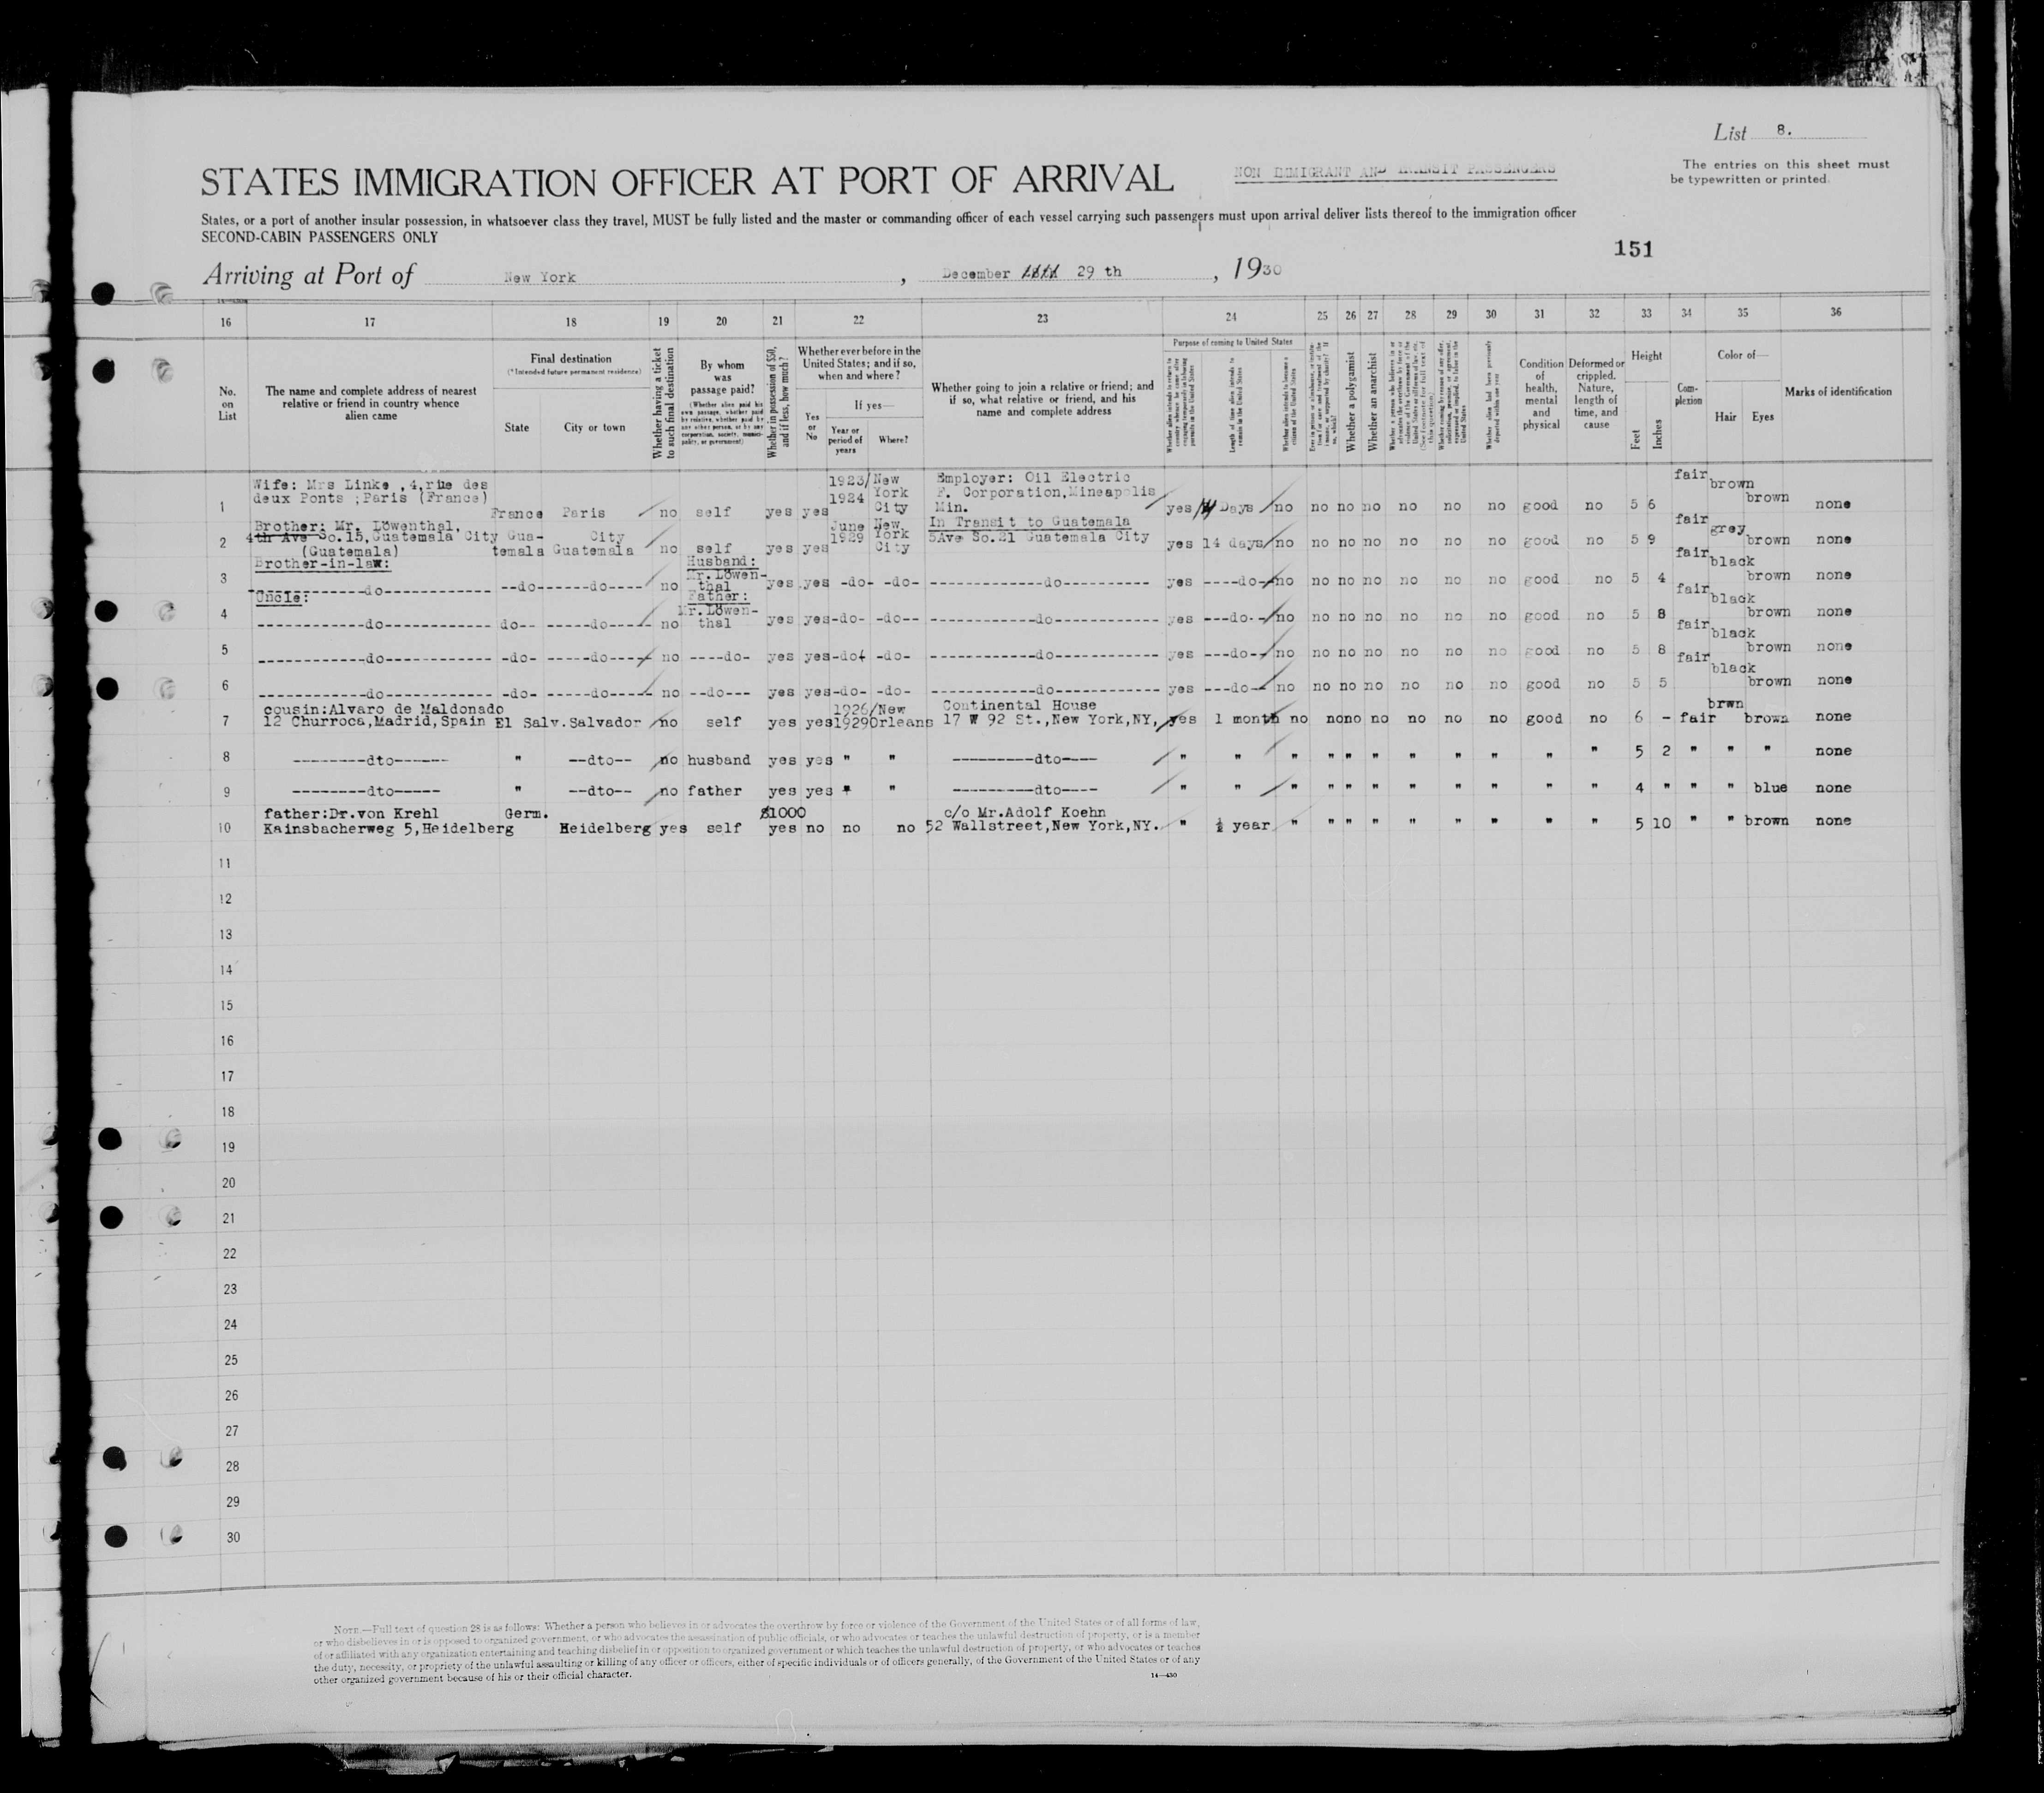 List 8.
STATES IMMIGRATION OFFICER AT PORT OF ARRIVAL
NON IMMIGRANT AND TRANSIT PASSENGERS
The entries on this sheet must
be typewritten or printed.
States, or a port of another insular possession, in whatsoever class they travel, MUST be fully listed and the master or commanding officer of each vessel carrying such passengers must upon arrival deliver lists thereof to the immigration officer
SECOND-CABIN PASSENGERS ONLY
151
Arriving at Port of New York, December 29 th, 1930
16 17 18 19 20 21 22 23 24 25 26 27 28 29 30 31 32 33 34 35 36
No. on List
The name and complete address of nearest
relative or friend in country whence
alien came
Final destination
(*Intended future permanent residence)
State City or town
Whether having a ticket
to such final destination
By whom
was
passage paid?
(Whether alien paid his
own passage, whether paid
by relative, whether paid by
any other person, or by any
corporation, society, munici-
pality, or government)
Whether in possession of $50,
and if less, how much?
Whether ever before in the
United States; and if so,
when and where?
Yes or No
If yes—
Year or
period of
years
Where?
Whether going to join a relative or friend; and
if so, what relative or friend, and his
name and complete address
Purpose of coming to United States
Whether alien intends to return to
country whence he came after
engaging temporarily in laboring
pursuits in the United States
Length of time alien intends to
remain in the United States
Whether alien intends to become a
citizen of the United States
Whether a polygamist
Whether an anarchist
Whether alien had been previously
deported within one year
Condition
of
health,
mental
and
physical
Deformed or
crippled.
Nature,
length of
time, and
cause
Height
Feet Inches
Com-
plexion
Color of—
Hair Eyes
Marks of identification
1 Wife: Mrs Linke ,4,rue des
deux Ponts ;Paris (France)
France Paris no self yes yes 1923/1924 New York City
Employer: Oil Electric
F. Corporation,Mineapolis
Min.
yes Days no no no no no no no good no 5 6 fair brown brown none
2 Brother: Mr. Löwenthal,
4th Ave So.15,Guatemala City
(Guatemala)
Gua-
temala City
Guatemala no self yes yes June 1929 New York City
In Transit to Guatemala
5Ave So.21 Guatemala City
yes 14 days no no no no no no no good no 5 9 fair grey brown none
3 Brother-in-law:
do do do no Husband:
Mr.Löwen-
thal yes yes -do- -do- do yes do no no no no no no no good no 5 4 fair black brown none
4 Uncle:
do do do no Father:
Mr.Löwen-
thal yes yes -do- -do- do yes do no no no no no no no good no 5 8 fair black brown none
5 do do do no do yes yes -do- -do- do yes do no no no no no no no good no 5 8 fair black brown none
6 do do do no do yes yes -do- -do- do yes do no no no no no no no good no 5 5 fair black brown none
7 cousin:Alvaro de Maldonado
12 Churroca,Madrid,Spain El Salv.Salvador no self yes yes 1926/1929 New Orleans
Continental House
17 W 92 St.,New York,NY, yes 1 month no no no no no no no good no 6 - fair brwn brown none
8 dto " dto no husband yes yes " " dto " " " " " " " " " " " 5 2 " " " none
9 dto " dto no father yes yes " " dto " " " " " " " " " " " 4 " " " blue none
10 father:Dr.von Krehl
Kainsbacherweg 5,Heidelberg Germ. Heidelberg yes self $1000
yes no no no c/o Mr.Adolf Koehn
52 Wallstreet,New York,NY. " ½ year " " " " " " " " " 5 10 " " brown none
11
12
13
14
15
16
17
18
19
20
21
22
23
24
25
26
27
28
29
30
NOTE.—Full text of question 28 is as follows: Whether a person who believes in or advocates the overthrow by force or violence of the Government of the United States or of all forms of law,
or who disbelieves in or is opposed to organized government, or who advocates the assassination of public officials, or who advocates or teaches the unlawful destruction of property, or is a member
of or affiliated with any organization entertaining and teaching disbelief in or opposition to organized government or which teaches the unlawful destruction of property, or who advocates or teaches
the duty, necessity, or propriety of the unlawful assaulting or killing of any officer or officers, either of specific individuals or of officers generally, of the Government of the United States or of any
other organized government because of his or their official character.
14—430